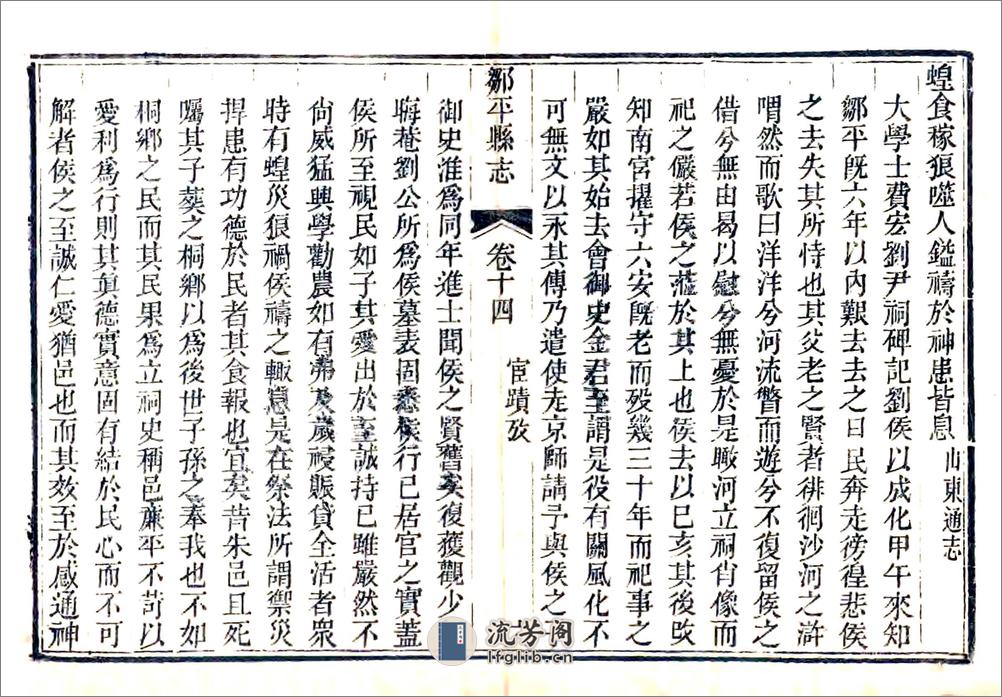 蝗食稼狼噬人鎰禱於神患皆息山東通志
大學士費宏劉尹祠碑記劉侯以成化甲午來知
鄒平旣六年以内艱去去之日民奔走徬徨悲侯
之去失其所恃也其父老之賢者徘徊沙河之滸
喟然而歌曰洋洋兮河流瞥而遊兮不復留侯之
借兮無由曷以慰兮無憂於是瞰河立祠肖像而
祀之儼若侯之蒞於其上也侯去以巳亥其後改
知南宮擢守六安旣老而歿幾三十年而祀事之
嚴如其始去會御史金君至謂是役有關風化不
可無文以永其傳乃遣使走京師請予與侯之
鄒平縣志 卷十四 宦蹟攷
御史淮爲同年進士聞侯之賢舊矣復獲觀少
晦菴劉公所爲侯墓表固悉侯行己居官之實蓋
侯所至視民如子其愛出於至誠持已雖嚴然不
尙威猛興學勸農如有弗及歲祲賑貸全活者衆
時有蝗災狼禍侯禱之輙息是在祭法所謂禦災
捍患有功德於民者其食報也宜矣昔朱邑且死
囑其子葬之桐鄉以爲後世子孫之奉我也不如
桐鄉之民而其民果爲立祠史稱邑亷平不苛以
愛利爲行則其眞德實意固有結於民心而不可
解者侯之至誠仁愛猶邑也而其效至於感通神
流芳阁
lfglib.cn